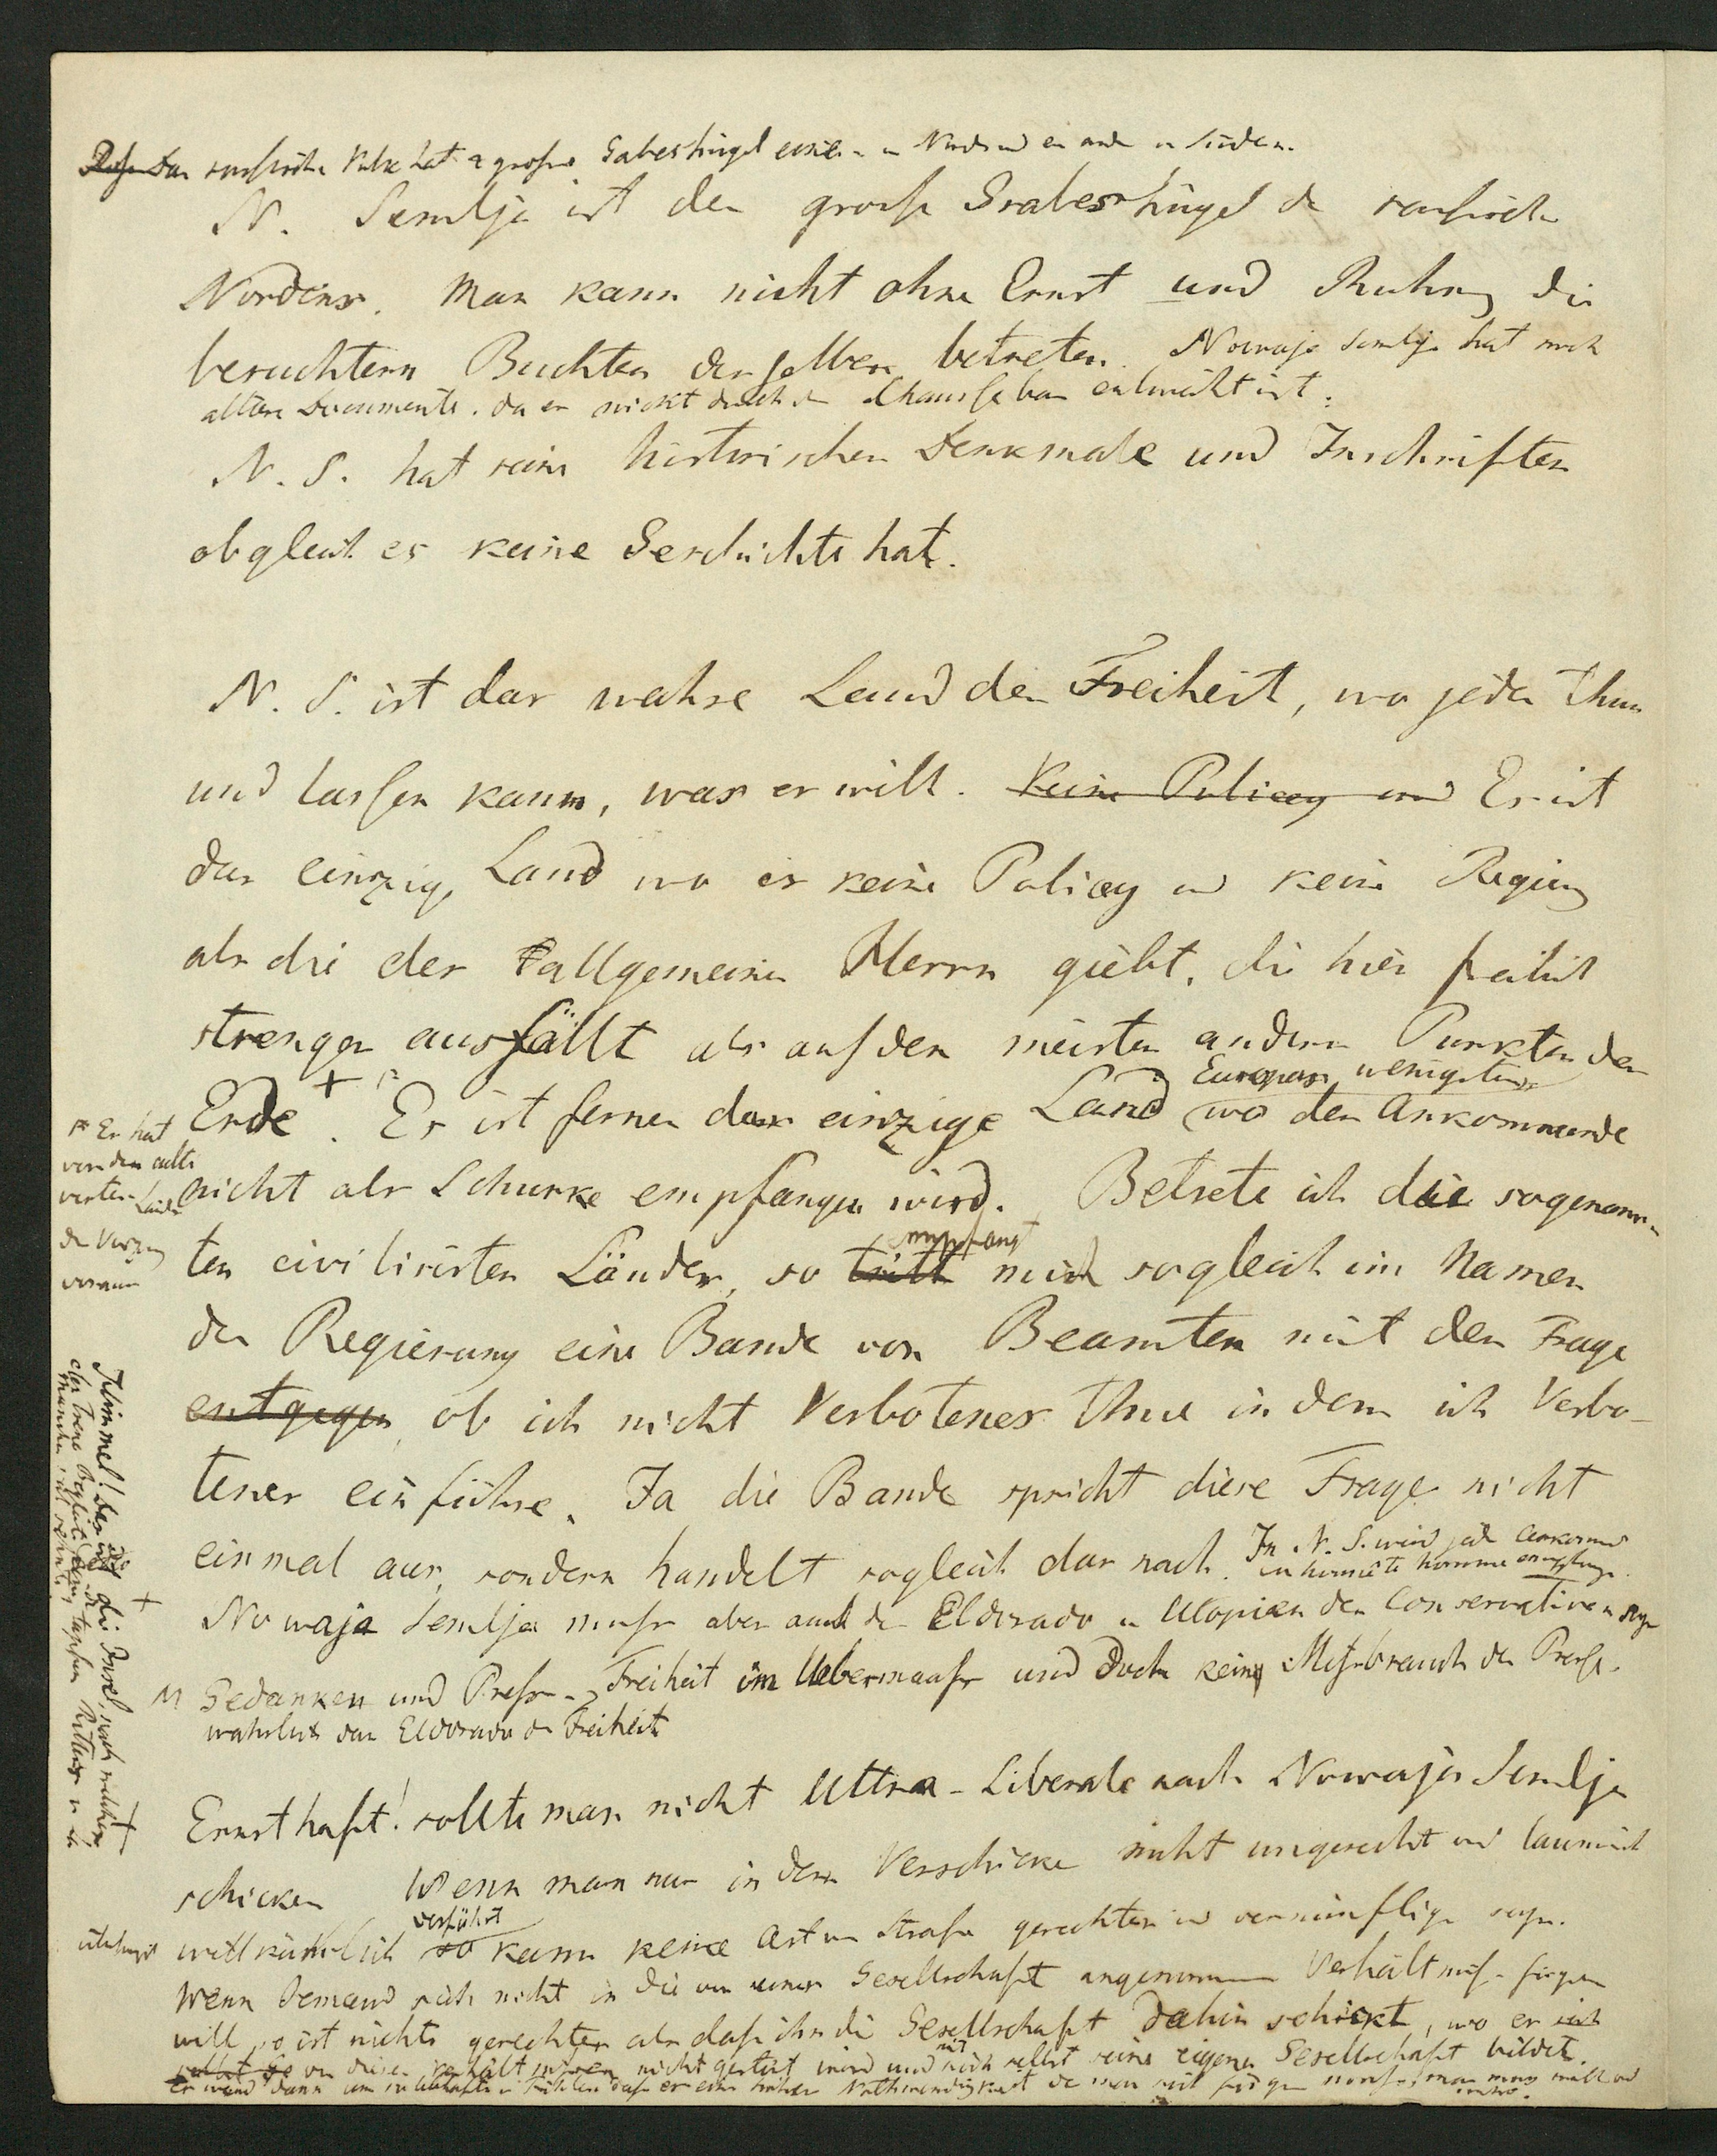 Das russische Volk hat 2 grosse Grabeshügel einen in Norden und en andn in Süden.
N. Semlja ist der grosse Grabeshügel des russischen
Nordens. Man kann nicht ohne Ernst und Ruhrung die
besuchtern Buchten desselben betreten. Nowaja Semlja hat noch
altere Documente. da es nicht durch den Chausseebau entweiht ist.
N. S. hat seine historischen Denkmale und Inschriften
obgleich es keine Geschichte hat.
N. S. ist das wahre Land der Freiheit, wo jeder thun
und lassen kann, was er will. Keine Policey und Es ist
das einzige Land wo es keine Policey und keine Regierung
als die des allgemeinen Herrn giebt, die hier freilich
strenger ausfällt als auf den meisten andern Punkten der
Europas wenigstens
Erde +. Es ist ferner das einzige Land wo der Ankommende
nicht als Schurke empfangen wird. Betrete ich die sogenann-
empfangt
ten civilisirten Länder, so tritt mich sogleich im Namen
der Regierung eine Bande von Beamten mit der Frage
entgegen, ob ich nicht Verbotenes thue in dem ich Verbo-
tenes einführe. Ja die Bande spricht diese Frage nicht
einmal aus, sondern handelt sogleich darnach. In N. S. wird jeder Ankommende
als honnête homme empfangen.
Nowaja Semlja muss aber auch das Eldorado u Utopien der Conservativen seyn
Gedanken und Press-Freiheit im Uebermaass und doch kein Missbrauch der Presse.
wahrlich das Eldorado der Freiheit
Ernsthaft! sollte man nicht Ultra-Liberale nach Nowaja Semlja
schicken Wenn man nur in dem Verschicken nicht ungerecht und launisch
verfährt
willkührlich so kann keine Art von Strafe gerechter und vernünftiger seyn.
Wenn Jemand sich nicht in die von einer Gesellschaft angenommenen Verhältnisse fügen
will, so ist nichts gerechter als dass ihn die Gesellschaft dahin schickt, wo er
von diesen Verhältnissen nicht gestört wird und mit sich selbst seine eigene Gesellschaft bildet.
Er wird dann am lebhaftesten fühlen dass es eine höhere Nothwendigkeit der man sich fügen muss, man mag wollen oder
nicht.
Es hat
von den culti
virten Ländern
den Vorzug
voraus
Himmel! das ist die Insel, nach welcher
der treue Begleiter des tapfern Ritters v. la
Mancha sich sehnte.